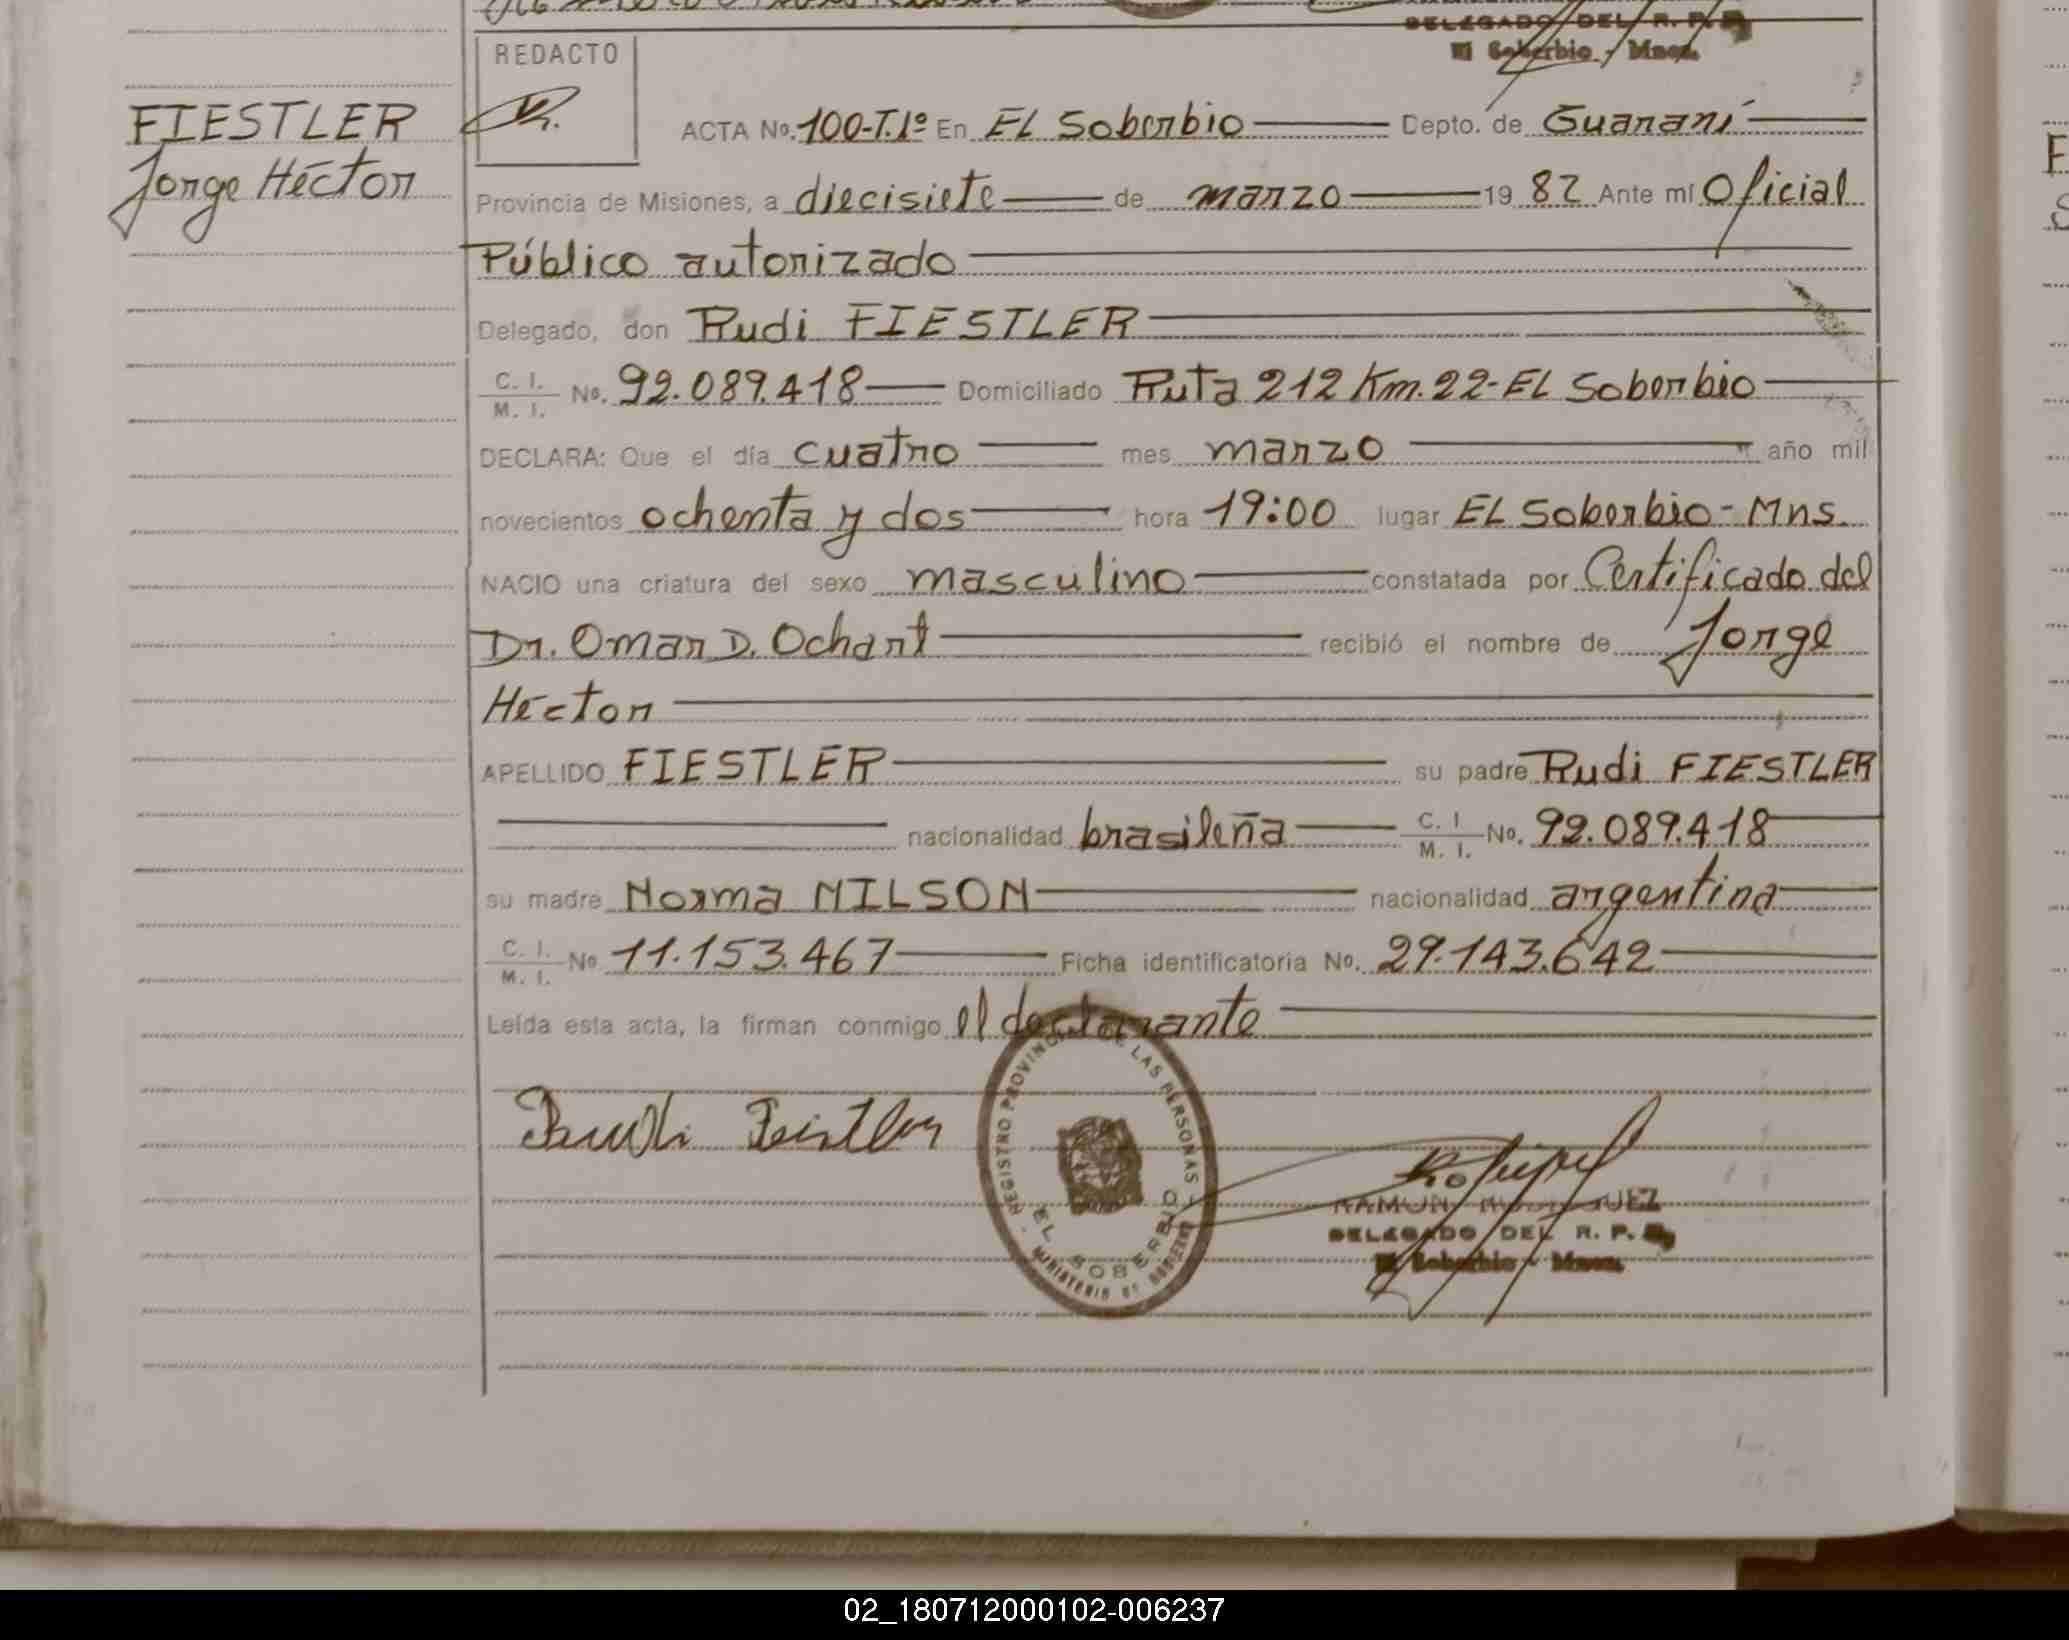 DELEGADO DEL R. P. P.
El Soberbio - Mnes.
REDACTO
FIESTLER
Jorge Héctor
ACTA No. 100-T.1º En EL Soberbio Depto. de Guaraní
Provincia de Misiones, a diecisiete de marzo 19 82 Ante mí Oficial
Público autorizado
Delegado, don Rudi FIESTLER
C. I.
M. I. No. 92.089.418 Domiciliado Ruta 212 Km. 22-EL Soberbio
DECLARA: Que el día cuatro mes marzo año mil
novecientos ochenta y dos hora 19:00 lugar EL Soberbio - Mns.
NACIO una criatura del sexo masculino constatada por Certificado del
Dr. Omar D. Ochart recibió el nombre de Jorge
Héctor
APELLIDO FIESTLER su padre Rudi FIESTLER
nacionalidad brasileña C. I. M. I. No. 92.089.418
su madre Norma NILSON nacionalidad argentina
C. I. M. I. No 11.153.467 Ficha identificatoria No. 29.143.642
Leída esta acta, la firman conmigo el declarante
REGISTRO PROVINCIAL DE LAS PERSONAS
EL SOBERBIO
MINISTERIO DE GOBIERNO
RAMON RODRIGUEZ
DELEGADO DEL R. P. P.
El Soberbio - Mnes.
02_180712000102-006237